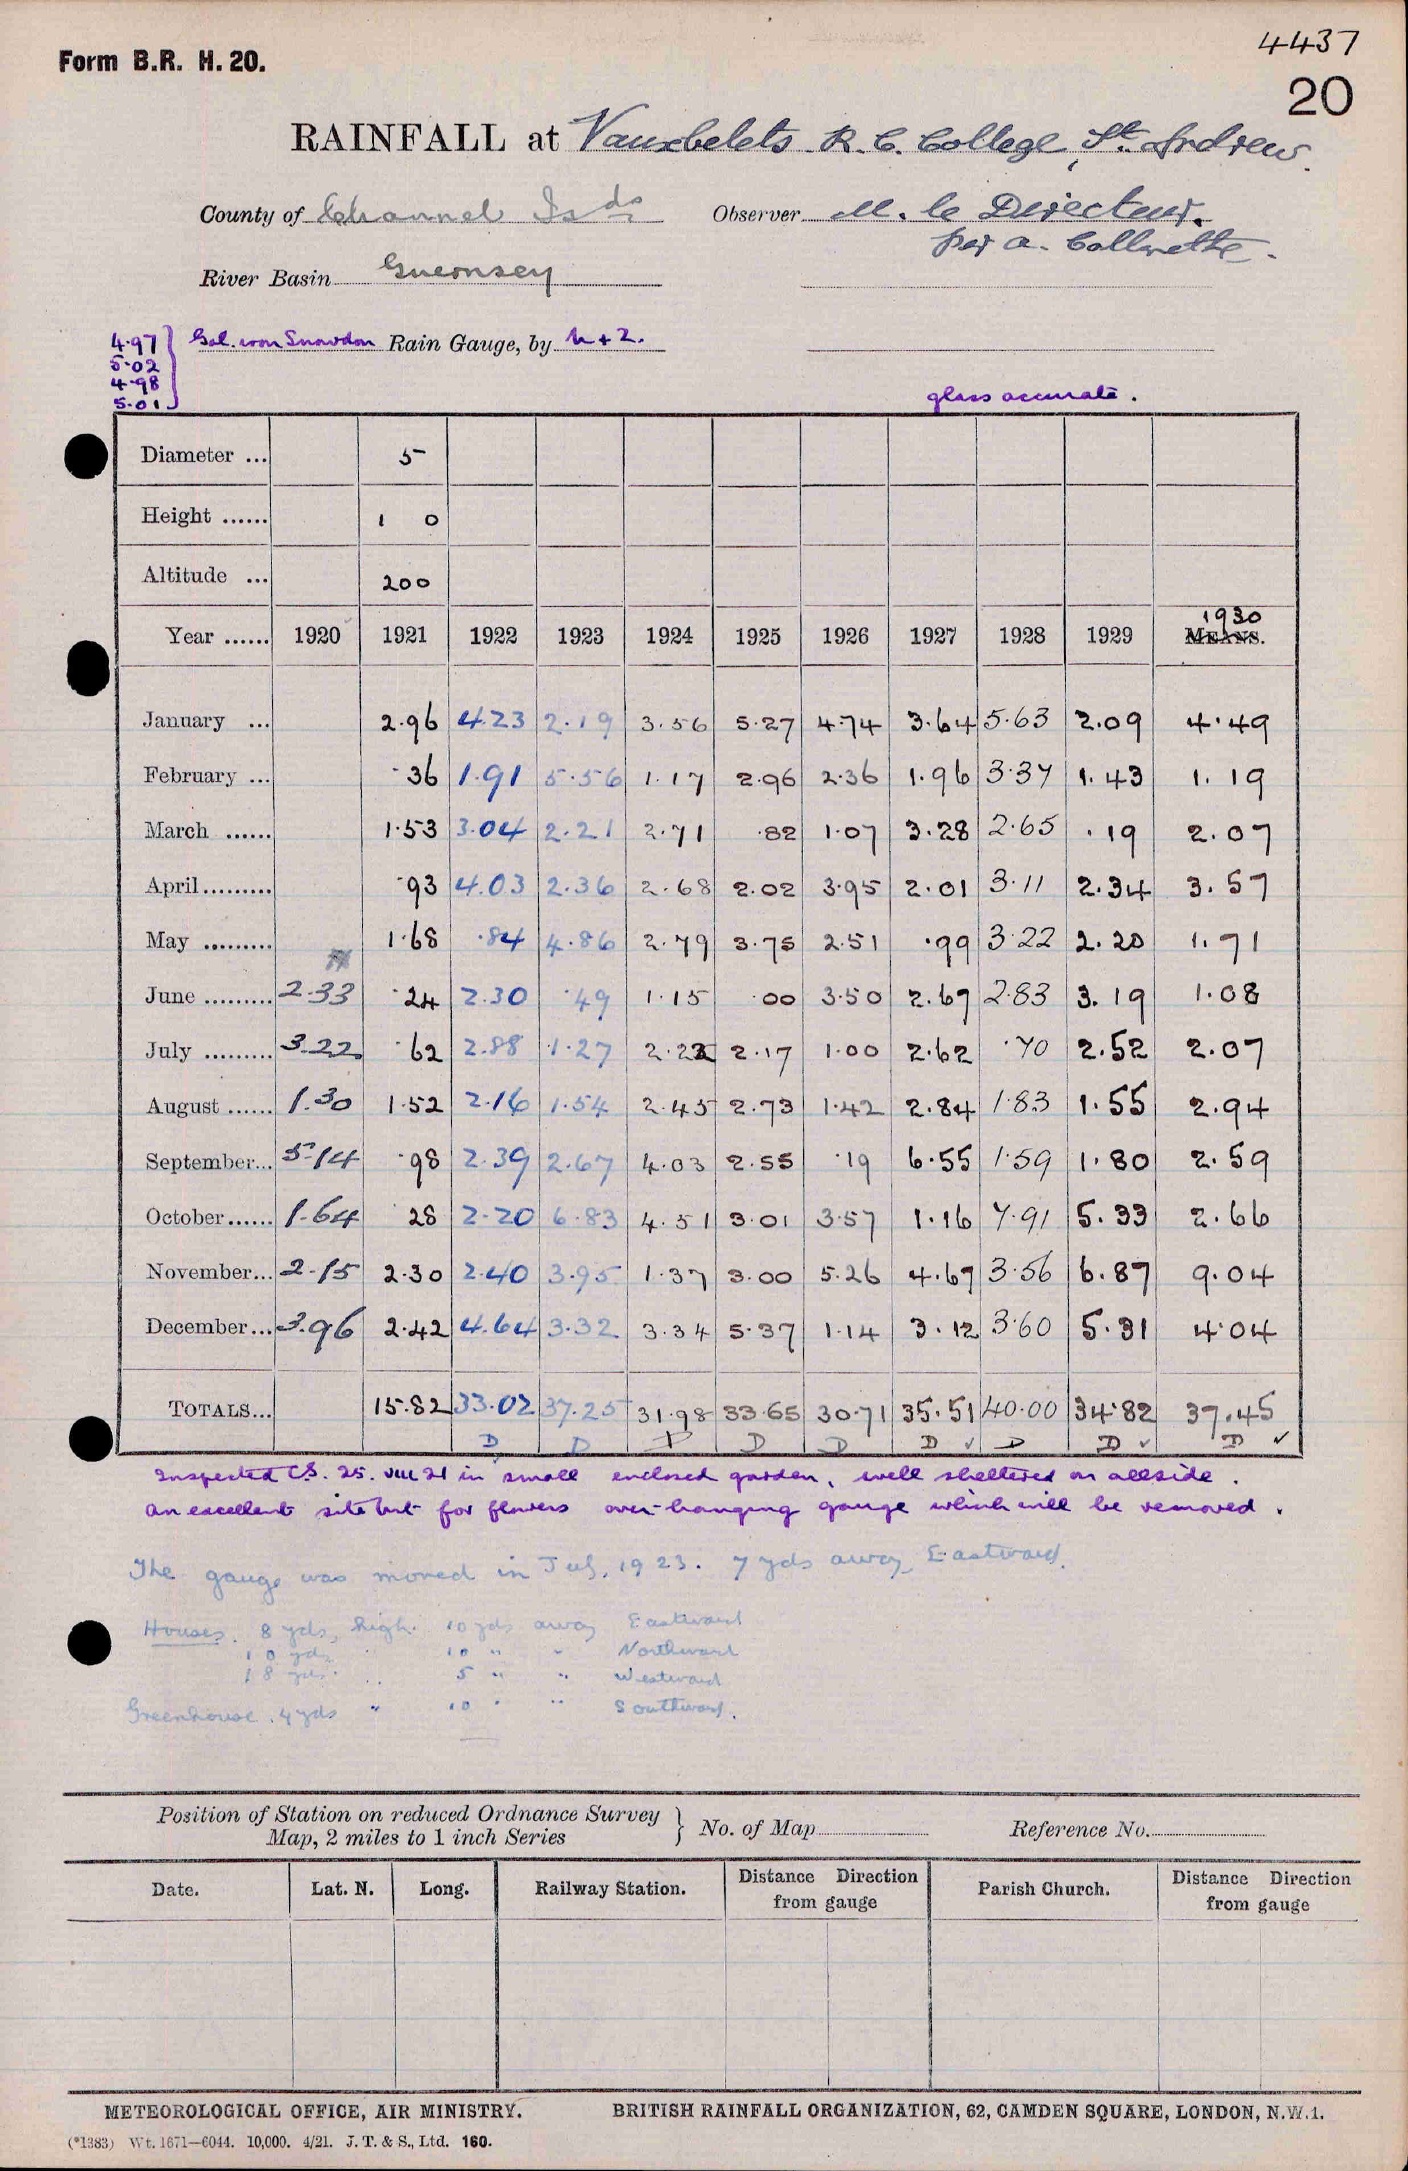 4437
Form B.R. H. 20.
20
RAINFALL at Vauxbelets R. C. College, St. Andrew.
County of Channel Isds Observer M. le Directeur.
per A. Collenette.
River Basin Guernsey
4.97
5.02
4.98
5.01
Gal. iron Snowdon Rain Gauge, by N + Z.
glass accurate.
Diameter ... 5
Height ...... 1 0
Altitude ... 200
Year ...... 1920 1921 1922 1923 1924 1925 1926 1927 1928 1929 1930 MEANS.
January ... 2.96 4.23 2.19 3.56 5.27 4.74 3.64 5.63 2.09 4.49
February ... .36 1.91 5.56 1.17 2.96 2.36 1.96 3.37 1.43 1.19
March ...... 1.53 3.04 2.21 2.71 .82 1.07 3.28 2.65 .19 2.07
April ......... .93 4.03 2.36 2.68 2.02 3.95 2.01 3.11 2.34 3.57
May ......... 1.68 .84 4.86 2.79 3.75 2.51 .99 3.22 2.20 1.71
June ......... 2.33 .24 2.30 .49 1.15 .00 3.50 2.67 2.83 3.19 1.08
July ......... 3.22 .62 2.88 1.27 2.22 2.17 1.00 2.62 .70 2.52 2.07
August ...... 1.30 1.52 2.16 1.54 2.45 2.73 1.42 2.84 1.83 1.55 2.94
September... 5.14 .98 2.39 2.67 4.03 2.55 .19 6.55 1.59 1.80 2.59
October...... 1.64 .28 2.20 6.83 4.51 3.01 3.57 1.16 7.91 5.33 2.66
November... 2.15 2.30 2.40 3.95 1.37 3.00 5.26 4.67 3.56 6.87 9.04
December... 3.96 2.42 4.64 3.32 3.34 5.37 1.14 3.12 3.60 5.31 4.04
TOTALS... 15.82 33.02 37.25 31.98 33.65 30.71 35.51 40.00 34.82 37.45
D D D D D D ✓ D D ✓ D ✓
Inspected C.S. 25. VIII 21 in small enclosed garden, well sheltered on allside.
An excellent site but for flowers over-hanging gauge which will be removed.
The gauge was moved in July, 1923. 7 yds away Eastward.
Houses. 8 yds, high. 10 yds away Eastward
10 yds " 10 " " Northward
18 yds. " 5 " " Westward
Greenhouse. 4 yds " 10 " " Southward.
Position of Station on reduced Ordnance Survey
Map, 2 miles to 1 inch Series } No. of Map Reference No.
Date. Lat. N. Long. Railway Station. Distance Direction from gauge Parish Church. Distance Direction from gauge
METEOROLOGICAL OFFICE, AIR MINISTRY. BRITISH RAINFALL ORGANIZATION, 62, CAMDEN SQUARE, LONDON, N.W.1.
(*1383) Wt. 1671—6044. 10,000. 4/21. J. T. & S., Ltd. 160.